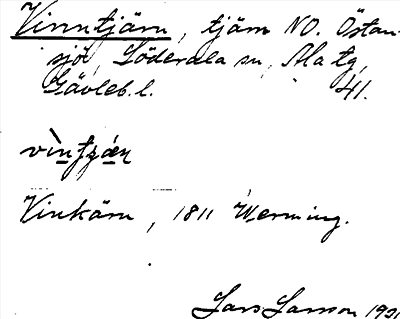 Vinntjärn, tjärn NO. Östan-
sjö, Söderala sn, Ala tg,
Gävleb. l. 41.
Vinkärn, 1811 Werming.
Lars Larsson 19